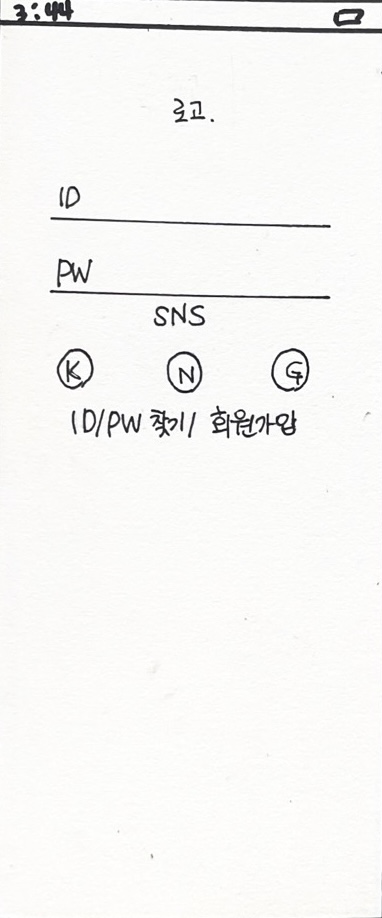 3:44
로고.
ID
PW
SNS
K N G
ID/PW 찾기/ 회원가입